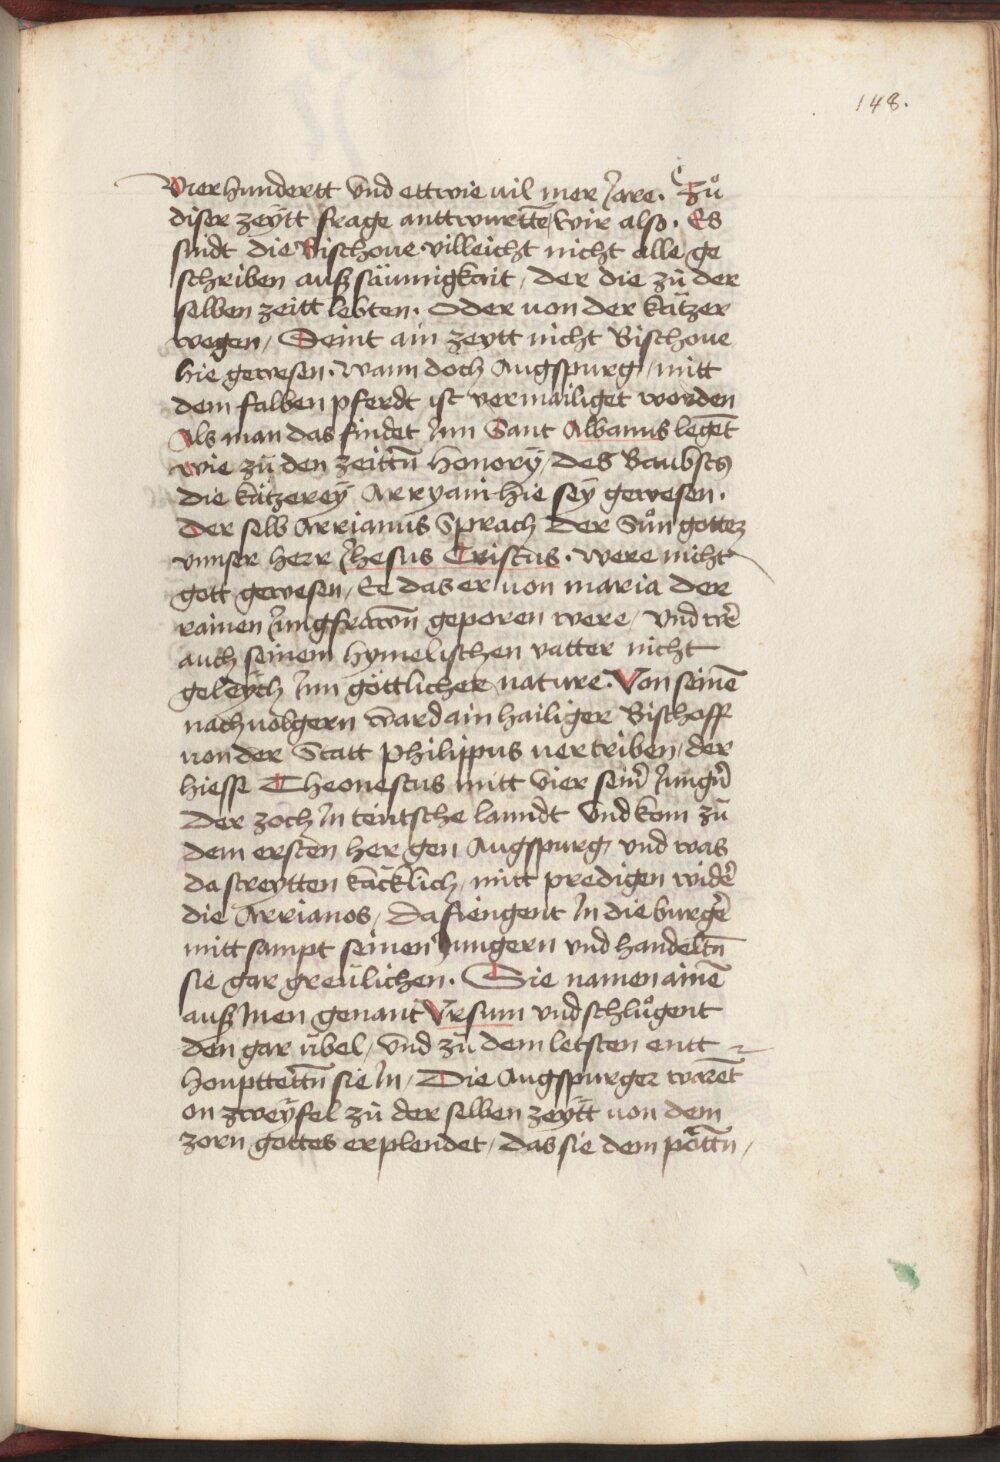 148.
Vierhundertt vnd ettwie uil mer Jare. Zů
diser zeÿtt frage anttwurttē wir also. Es
sindt die Bischoue villeicht nicht alle ge
schriben auß säumigkait, der die zů der
selben zeitt lebten. Oder von der kätzer
wegen, Seint ain zeytt nicht Bischoue
hie gewesen. wann doch Augspurg, mitt
dem falben pferdt ist vermailiget worden
Als man das findet Jnn Sant Albanus legēt
wie zů den zeittn̄ Honorÿ, des Baubsts
die kätzereÿ Arryani hie seÿ gewesen.
Der selb Arrianus Sprach Der Sůn gottez
vnnser herr Jhesus Cristus. were nicht
gott gewesen, Ee das er von maria der
rainen Jungfrawn̄ geporen were, vnd wēr
auch seinem hymelischen vatter nicht
geleÿch Jnn göttlicher nature. Von seinē
nachuolgern ward ain hailiger Bischoff
von der Statt Philippus uertriben, der
hiesse Theonestus mitt vier sein̄ Jungn̄
Der zoch Jn teütsche lanndt vnd kom zů
dem ersten her gen Augspurg, vnd was
da streytten käcklich, mitt predigen widēr
die Arrianos, Da fiengent Jn die burgēr
mitt sampt seinen Jungern vnd handeltn̄
sie gar greülichen. Sie namen ainē
auß Jnen genant Vrsum vnd schlůgent
den gar übel, vnd zů dem letsten entt
haupttettn̄ sie Jn, Die Augspurger warēt
on zweÿfel zů der selben zeÿtt uon dem
zorn gottes erplendet, das sie dem pöttn̄,